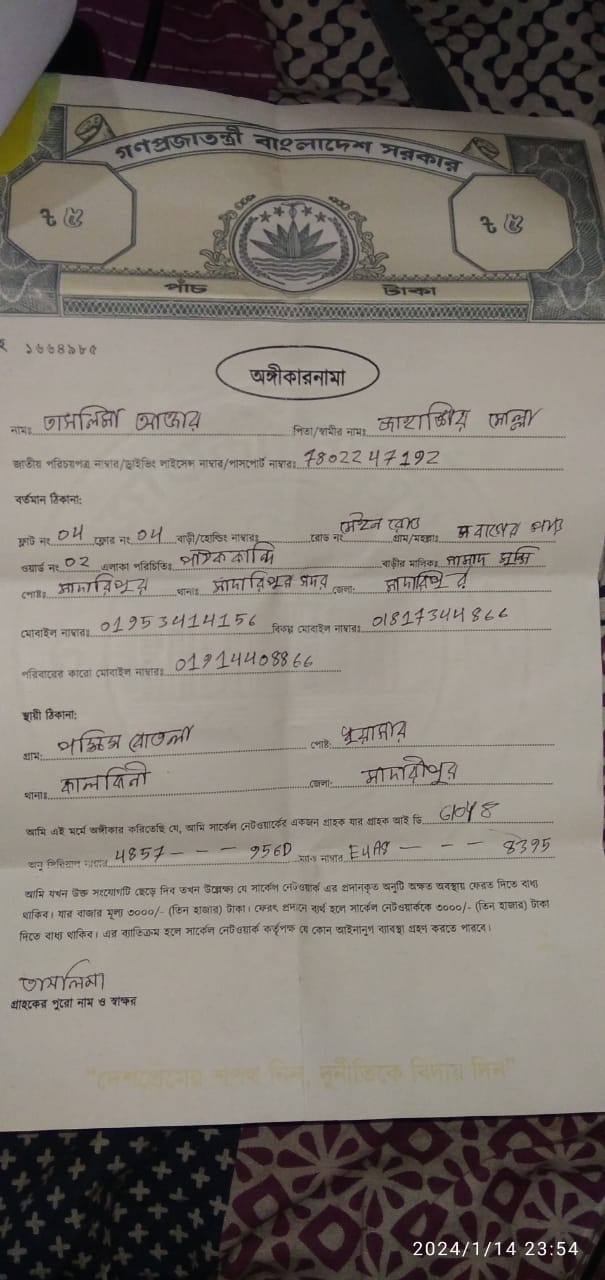 গণপ্রজাতন্ত্রী বাংলাদেশ সরকার
৳ ৫ ৳ ৫
পাঁচ টাকা
১৬৬৪৯৮৫
অঙ্গীকারনামা
নামঃ তাসলিমা আক্তার পিতা/স্বামীর নামঃ জাহাঙ্গীর মোল্লা
জাতীয় পরিচয়পত্র নাম্বার/ড্রাইভিং লাইসেন্স নাম্বার/পাসপোর্ট নাম্বারঃ 7802247192
বর্তমান ঠিকানা:
ফ্লাট নং 04 ফ্লোর নং 04 বাড়ী/হোল্ডিং নাম্বারঃ রোড নং মেইন রোড গ্রাম/মহল্লাঃ
ওয়ার্ড নং 02 এলাকা পরিচিতিঃ বাড়ীর মালিকঃ
পোষ্টঃ মাদারিপুর থানাঃ মাদারিপুর সদর জেলাঃ মাদারিপুর
মোবাইল নাম্বারঃ 01953414156 বিকল্প মোবাইল নাম্বারঃ 01817344866
পরিবারের কারো মোবাইল নাম্বারঃ 01914408866
স্থায়ী ঠিকানা:
গ্রামঃ পশ্চিম পোষ্টঃ
থানাঃ কালকিনী জেলাঃ মাদারীপুর
আমি এই মর্মে অঙ্গীকার করিতেছি যে, আমি সার্কেল নেটওয়ার্কের একজন গ্রাহক যার গ্রাহক আই ডি
অনু সিরিয়াল নাম্বার 4857 - - - 956D ম্যাক নাম্বার E4A8 - - - 8395
আমি যখন উক্ত সংযোগটি ছেড়ে দিব তখন উল্লেক্ষ্য যে সার্কেল নেটওয়ার্ক এর প্রদানকৃত অনুটি অক্ষত অবস্থায় ফেরত দিতে বাধ্য
থাকিব। যার বাজার মূল্য ৩০০০/- (তিন হাজার) টাকা। ফেরৎ প্রদানে ব্যর্থ হলে সার্কেল নেটওয়ার্ককে ৩০০০/- (তিন হাজার) টাকা
দিতে বাধ্য থাকিব। এর ব্যতিক্রম হলে সার্কেল নেটওয়ার্ক কর্তৃপক্ষ যে কোন আইনানুগ ব্যাবস্থা গ্রহণ করতে পারবে।
তাসলিমা
গ্রাহকের পুরো নাম ও স্বাক্ষর
"দেশপ্রেমের শপথ নিন, দুর্নীতিকে বিদায় দিন"
2024/1/14 23:54